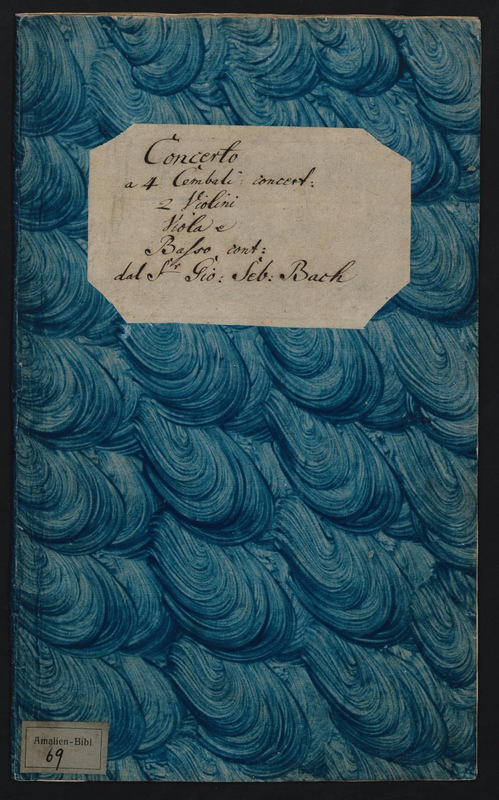 Concerto
a 4 Cembali concert:
2 Violini
Viola e
Basso cont:
dal Sr. Gio: Seb: Bach
Amalien-Bibl.
69